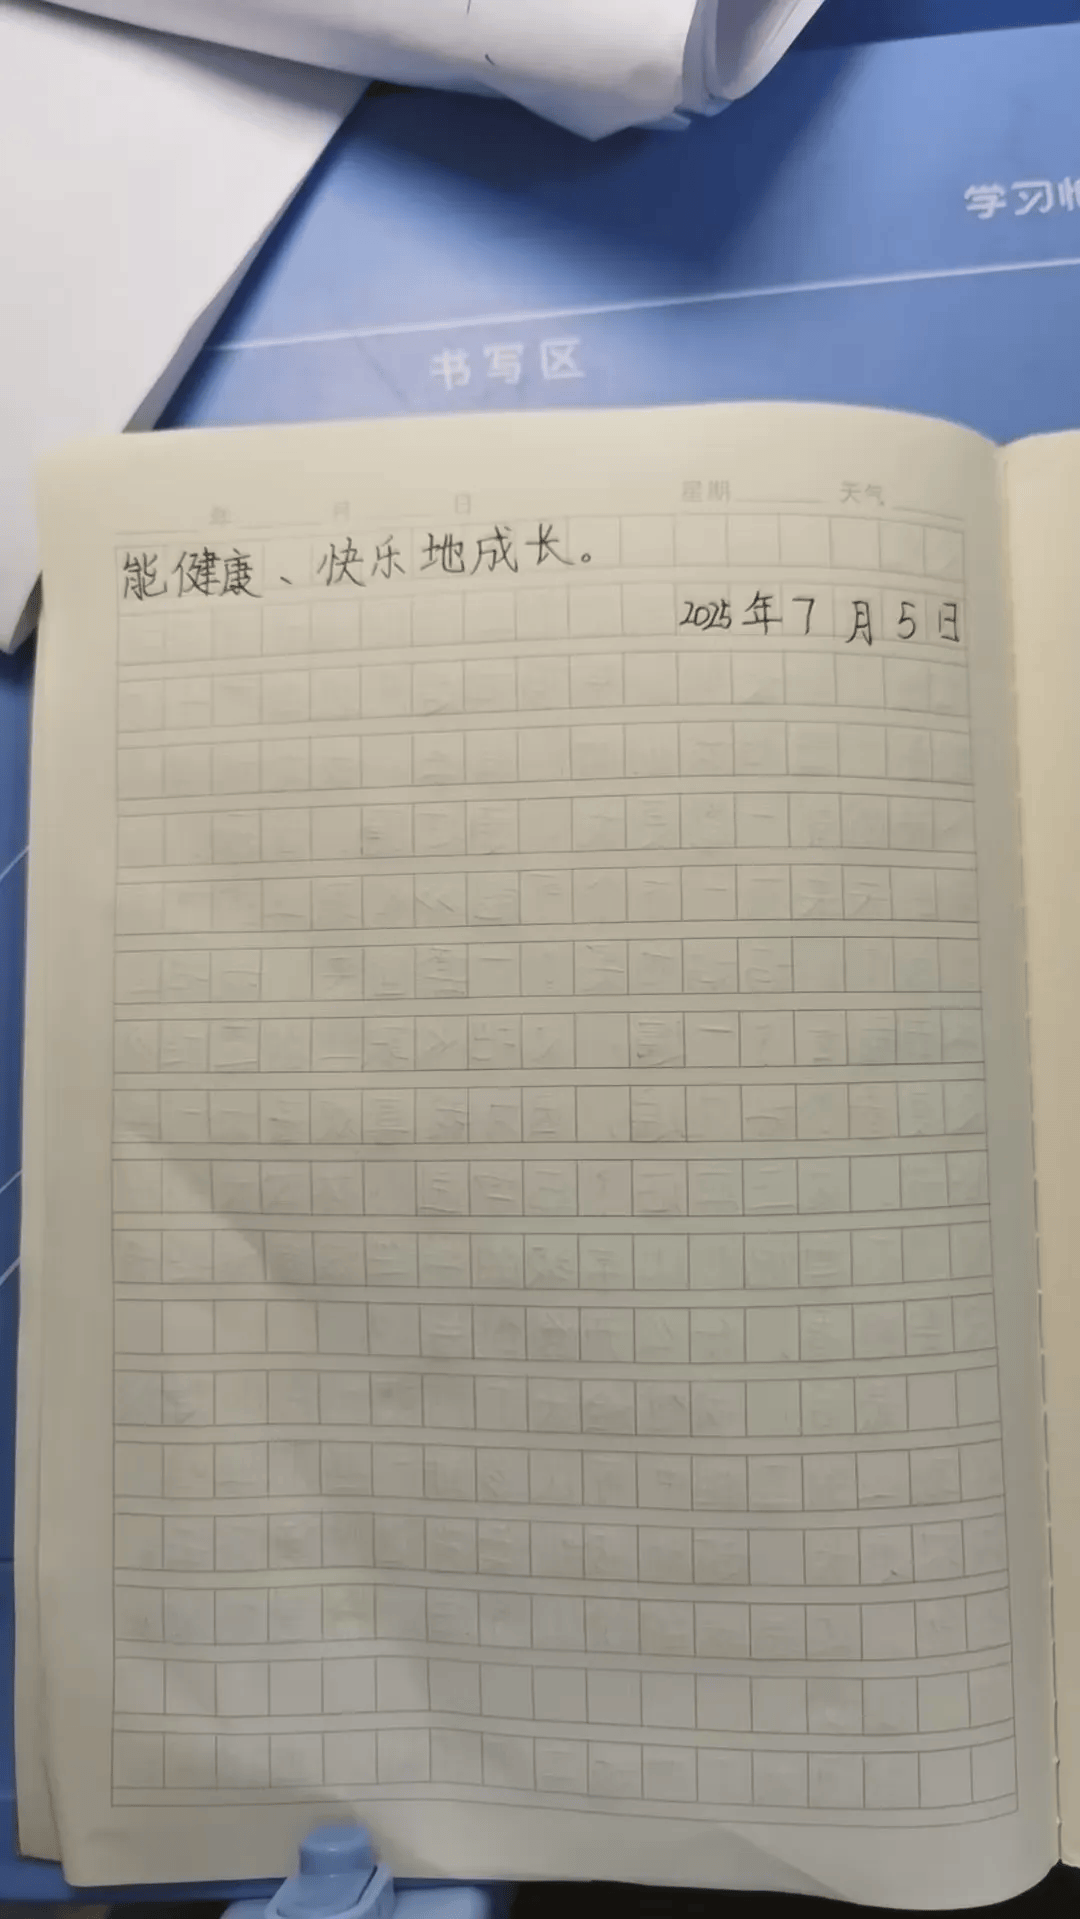 学习
书写区
年 月 日 星期 天气
能健康、快乐地成长。
2025年7月5日